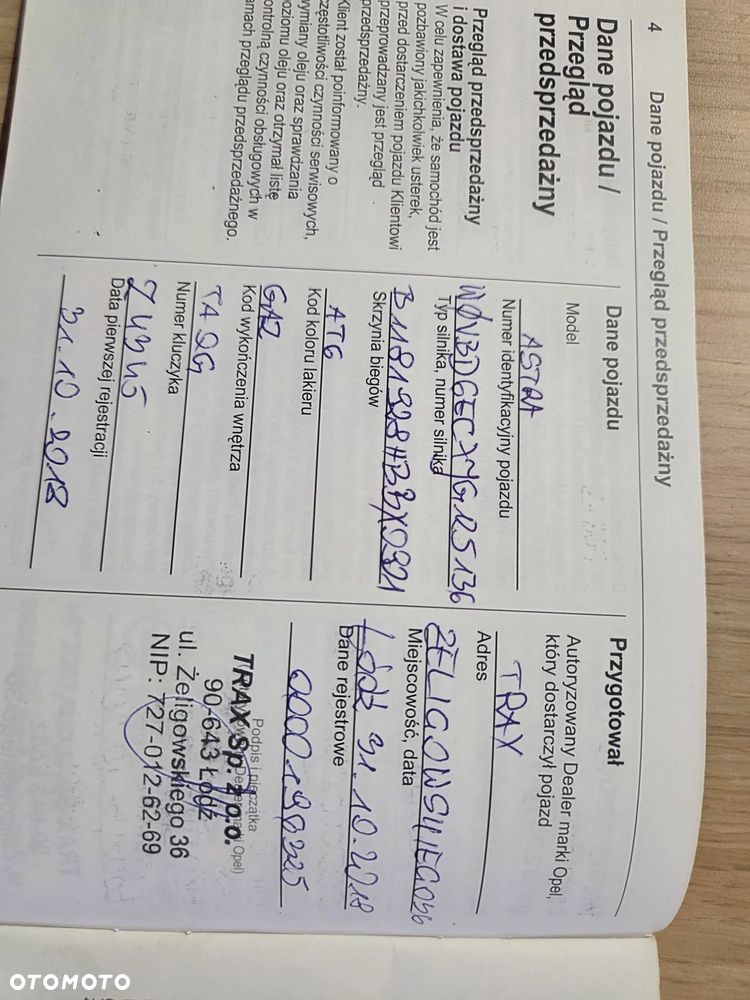 4 Dane pojazdu / Przegląd przedsprzedażny
Dane pojazdu /
Przegląd
przedsprzedażny
Przegląd przedsprzedażny
i dostawa pojazdu
W celu zapewnienia, że samochód jest
pozbawiony jakichkolwiek usterek,
przed dostarczeniem pojazdu Klientowi
przeprowadzany jest przegląd
przedsprzedażny.
Klient został poinformowany o
częstotliwości czynności serwisowych,
wymiany oleju oraz sprawdzania
poziomu oleju oraz otrzymał listę
kontrolną czynności obsługowych w
ramach przeglądu przedsprzedażnego.
Dane pojazdu
Model
ASTRA
Numer identyfikacyjny pojazdu
Typ silnika, numer silnika
Skrzynia biegów
AT6
Kod koloru lakieru
GAZ
Kod wykończenia wnętrza
TAQG
Numer kluczyka
Z4345
Data pierwszej rejestracji
31.10.2018
Przygotował
Autoryzowany Dealer marki Opel,
który dostarczył pojazd
TRAX
Adres
ŻELIGOWSKIEGO 36
Miejscowość, data
ŁÓDŹ 31.10.2018
Dane rejestrowe
Podpis i pieczątka
TRAX Sp. z o.o.
90-643 Łódź
ul. Żeligowskiego 36
NIP: 727-012-62-69
OTOMOTO